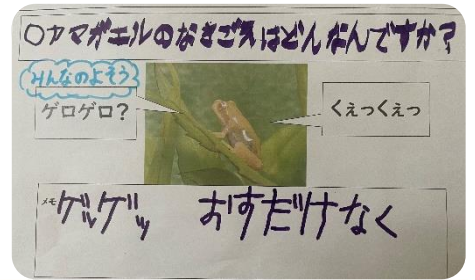 〇アマガエルのなきごえはどんなんですか?
みんなのよそう
ゲロゲロ?
くぇっくぇっ
メモ
ゲッゲッ おすだけなく